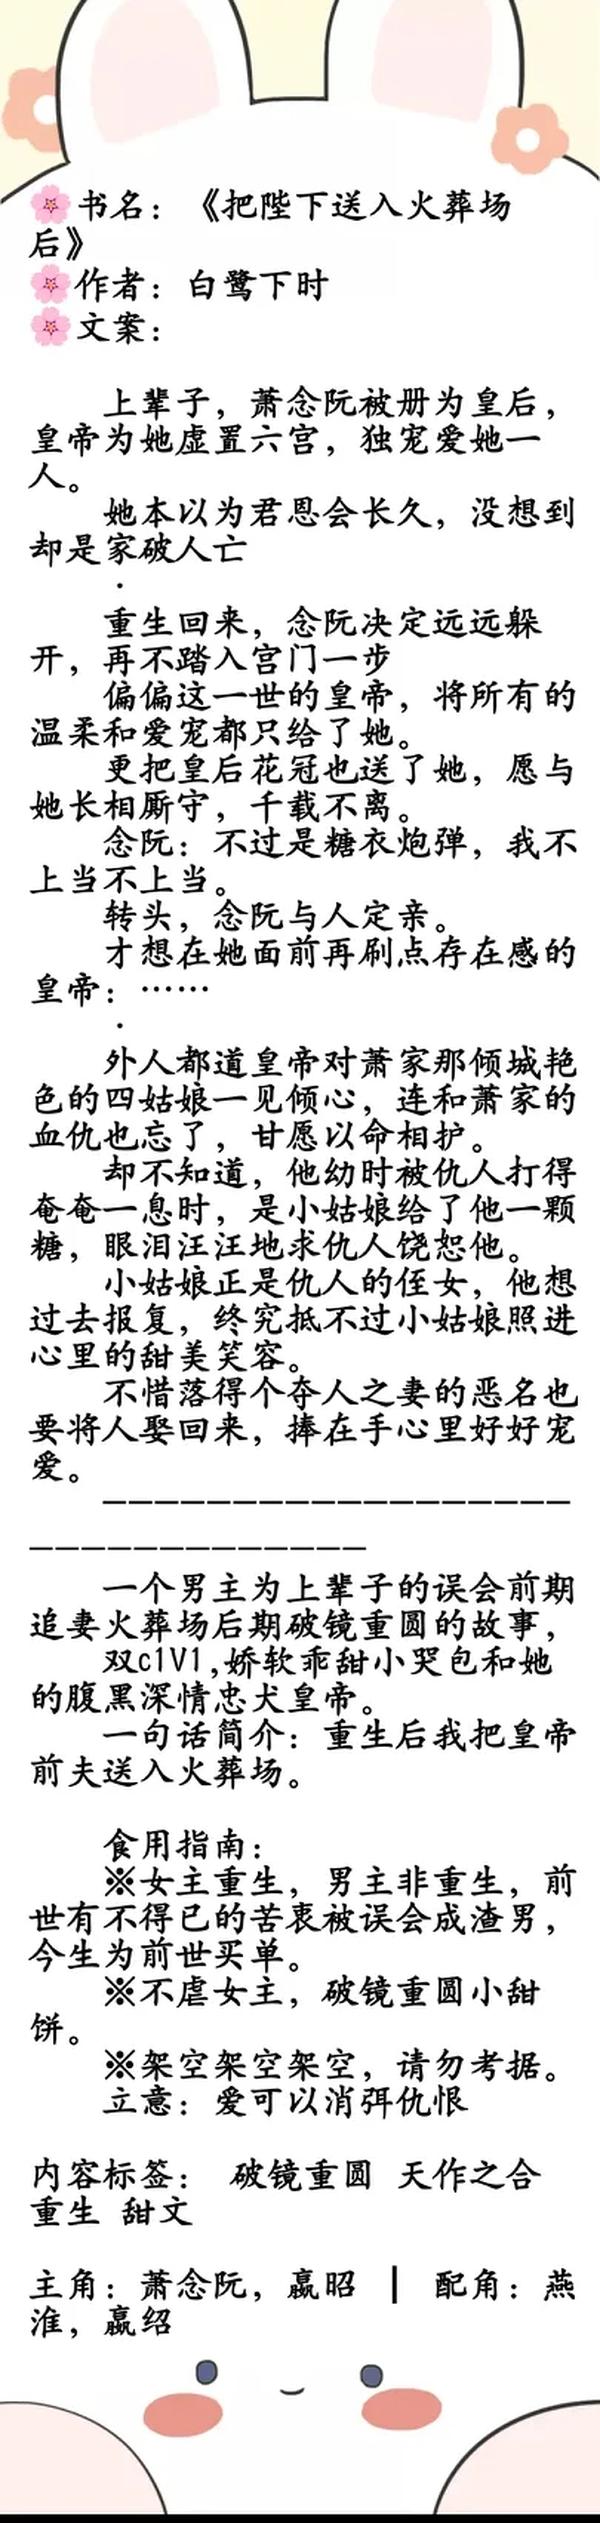 🌸书名：《把陛下送入火葬场
后》
🌸作者：白鹭下时
🌸文案：
上辈子，萧念阮被册为皇后，
皇帝为她虚置六宫，独宠爱她一
人。
她本以为君恩会长久，没想到
却是家破人亡
·
重生回来，念阮决定远远躲
开，再不踏入宫门一步
偏偏这一世的皇帝，将所有的
温柔和爱宠都只给了她。
更把皇后花冠也送了她，愿与
她长相厮守，千载不离。
念阮：不过是糖衣炮弹，我不
上当不上当。
转头，念阮与人定亲。
才想在她面前再刷点存在感的
皇帝：……
·
外人都道皇帝对萧家那倾城艳
色的四姑娘一见倾心，连和萧家的
血仇也忘了，甘愿以命相护。
却不知道，他幼时被仇人打得
奄奄一息时，是小姑娘给了他一颗
糖，眼泪汪汪地求仇人饶恕他。
小姑娘正是仇人的侄女，他想
过去报复，终究抵不过小姑娘照进
心里的甜美笑容。
不惜落得个夺人之妻的恶名也
要将人娶回来，捧在手心里好好宠
爱。
——————————————————
—————————————
一个男主为上辈子的误会前期
追妻火葬场后期破镜重圆的故事，
双c1V1,娇软乖甜小哭包和她
的腹黑深情忠犬皇帝。
一句话简介：重生后我把皇帝
前夫送入火葬场。
食用指南：
※女主重生，男主非重生，前
世有不得已的苦衷被误会成渣男，
今生为前世买单。
※不虐女主，破镜重圆小甜
饼。
※架空架空架空，请勿考据。
立意：爱可以消弭仇恨
内容标签： 破镜重圆 天作之合
重生 甜文
主角：萧念阮，嬴昭 ┃ 配角：燕
淮，嬴绍